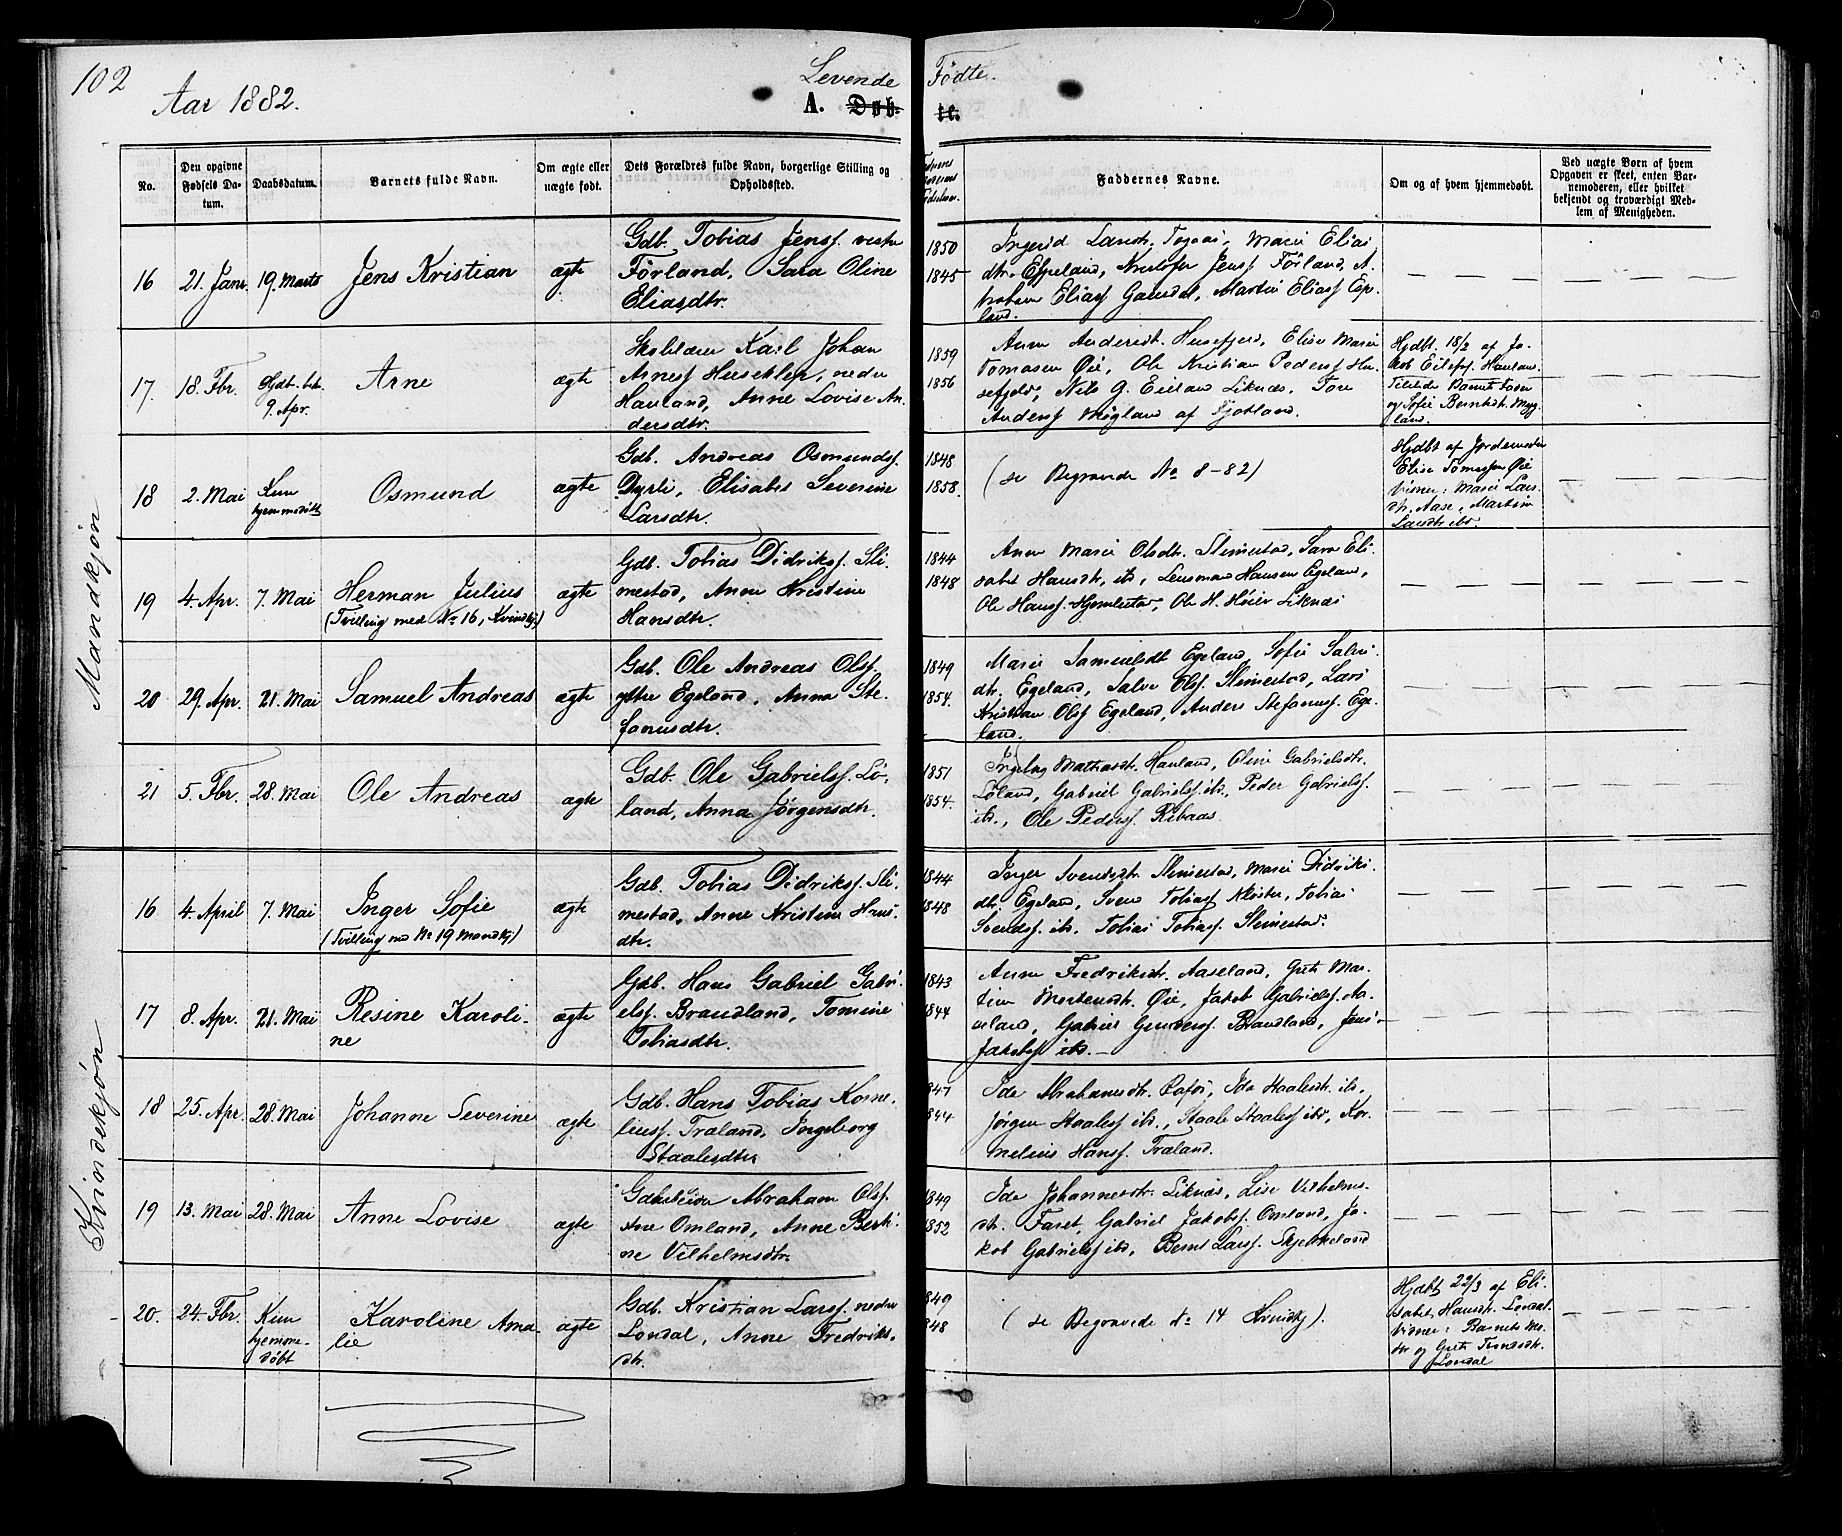 102
Aar 1882.
Levende Fødte.
A. Døb- te.
No.
Den opgivne Fødsels Datum.
Daabsdatum.
Barnets fulde Navn.
Om ægte eller uægte født.
Dets Forældres fulde Navn, borgerlige Stilling og Opholdssted.
Faddernes Navne.
Om og af hvem hjemmedøbt.
Ved uægte Børn af hvem Opgaven er skeet, enten Barnemoderen, eller hvilket bekjendt og troværdigt Medlem af Menigheden.
Mandkjøn
16 21. Janr. 19. Marts Jens Kristian ægte
Gdb. Tobias Jensf. vestre
Førland, Sara Oline
Eliasdtr.
1850
1845
Ingerid Larsdt. , Marie Elias
dtr. Espeland, Kristofer Jensf Førland, A-
braham Eliasf Gamdal, Martin Eliasf Esp-
land.
17 18. Fbr. Hjdt. bek. 9. Apr. Arne ægte
Skolelærer Karl Johan
Arnesf , nedre
Hauland, Anne Lovise An-
dersdtr.
1859
1856
Anne Andersdt. Husefjeld, Elise Marie
Tomasen Øie, Ole Kristian Pedersf Hu-
sefjeld, Nils G. Eieland Liknes, Tore
Andersf Mygland af Fjotland.
Hjdbt. 18/2 af Ja-
kob Eilefsf. Hauland
Tilstede Barnets Fader
og Sofie Berntsdt. Myg-
land.
18 2. Mai Kun hjemmedøbt Osmund ægte
Gdb. Andreas Osmundsf.
Dyrli, Elisabet Severine
Larsdtr.
1848
1858.
(se Begravede No 8-82)
Hjdbt af Jordemoder
Elise Tomassen Øie
Vidner: Marie Lars-
dt. Aase, Martin
Larsdtr ibd
19 4. Apr. 7. Mai Herman Julius ægte
(Tvilling med No 16, Kvindkj)
Gdb. Tobias Didriksf. Sli-
mestad, Anne Kristine
Hansdtr.
1844
1848
Anne Marie Olsdtr. Slimestad, Sara Eli-
sabet Hansdt, ibd, Lensmand Hansen Egeland,
Ole Hansf. , Ole H. Høier Liknes
20 29. Apr. 21. Mai Samuel Andreas ægte
Gdb. Ole Andreas Olsf.
ystre Egeland, Anna Ste-
fanusdtr.
1849
1854.
Marie Samuelsdt Egeland, Sofie Salve-
dtr. Egeland, Salve Olsf. Slimestad, Lars
Kristian Olsf Egeland, Anders Stefanusf. Ege-
land.
21 5. Fbr. 28. Mai Ole Andreas ægte
Gdb. Ole Gabrielsf. Lø-
land, Anna Jørgensdtr.
1851
1854.
Ingeborg Mathasdt. Hauland, Oline Gabrielsdtr.
Løland, Gabriel Gabrielsf. ibd, Peder Gabrielsf.
ibd., Ole Pedersf. Ribaas.
Kvindekjøn
16 4. April 7. Mai Inger Sofie ægte
(Tvilling med No 19 Mandkj)
Gdb. Tobias Didriksf. Sli-
mestad, Anne Kristine Hans-
dtr.
1844
1848
Inger Svendsdt. Slimestad, Marie Didriks-
dtr. Egeland, Svend Tobiasf Kloster, Tobias
Svendsf. ibd. Tobias Tobiasf. Slimestad.
17 8. Apr. 21. Mai Resine Karoli- ne ægte
Gdb. Hans Gabriel Gabri-
elsf. Brandland, Tomine
Tobiasdtr.
1843
1844
Anne Fredriksdtr. Aaseland, Grete Mar-
tine Mortensdt. Øie, Jakob Gabrielsf. Aa-
seland, Gabriel Gundersf. Brandland, Jens
Jakobsf ibd.
18 25. Apr. 28. Mai Johanne Severine ægte
Gdb. Hans Tobias Korne-
liusf. Træland, Ingeborg
Staalesdtr
1847
1844
Ida Abrahamsdt. , Ida Staalesdt. ibd,
Jørgen Staalesf ibd., Staale Staalesf ibd, Kor-
nelius Hansf. Træland.
19 13. Mai 28. Mai Anne Lovise ægte
Abraham Olsf.
Omland, Anne Berti-
ne Vilhelmsdtr.
1849
1852
Ida Johannesdt. Liknes, Lise Vilhelms-
dt. Faret, Gabriel Jakobsf. Omland, Ja-
kob Gabrielsf ibd, Bernt Larsf. Skjekkeland
20. 24. Fbr. Kun hjemme- døbt Karoline Ama- lie ægte
Gdb. Kristian Larsf. nedre
Londal, Anne Fredriks-
dt.
1849
1848
(se Begravede No 14 Kvindkj).
Hjdbt 22/3 af Eli-
sabet Hansdt. Londal.
Vidner: Barnets Mo-
der og Grete Tronsdt.
Londal